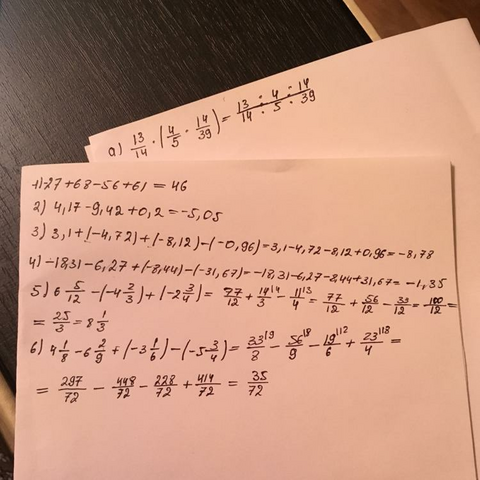 а) 13/14 · (4/5 · 14/39) = 13 · 4 · 14 / 14 · 5 · 39
1) -27 + 68 - 56 + 61 = 46
2) 4,17 - 9,42 + 0,2 = -5,05
3) 3,1 + (-4,72) + (-8,12) - (-0,96) = 3,1 - 4,72 - 8,12 + 0,96 = -8,78
4) -18,31 - 6,27 + (-8,44) - (-31,67) = -18,31 - 6,27 - 8,44 + 31,67 = -1,35
5) 6 5/12 - (-4 2/3) + (-2 3/4) = 77/12 + 14/3 \4 - 11/4 \3 = 77/12 + 56/12 - 33/12 = 100/12 =
= 25/3 = 8 1/3
6) 4 1/8 - 6 2/9 + (-3 1/6) - (-5 3/4) = 33/8 \9 - 56/9 \8 - 19/6 \12 + 23/4 \18 =
= 297/72 - 448/72 - 228/72 + 414/72 = 35/72